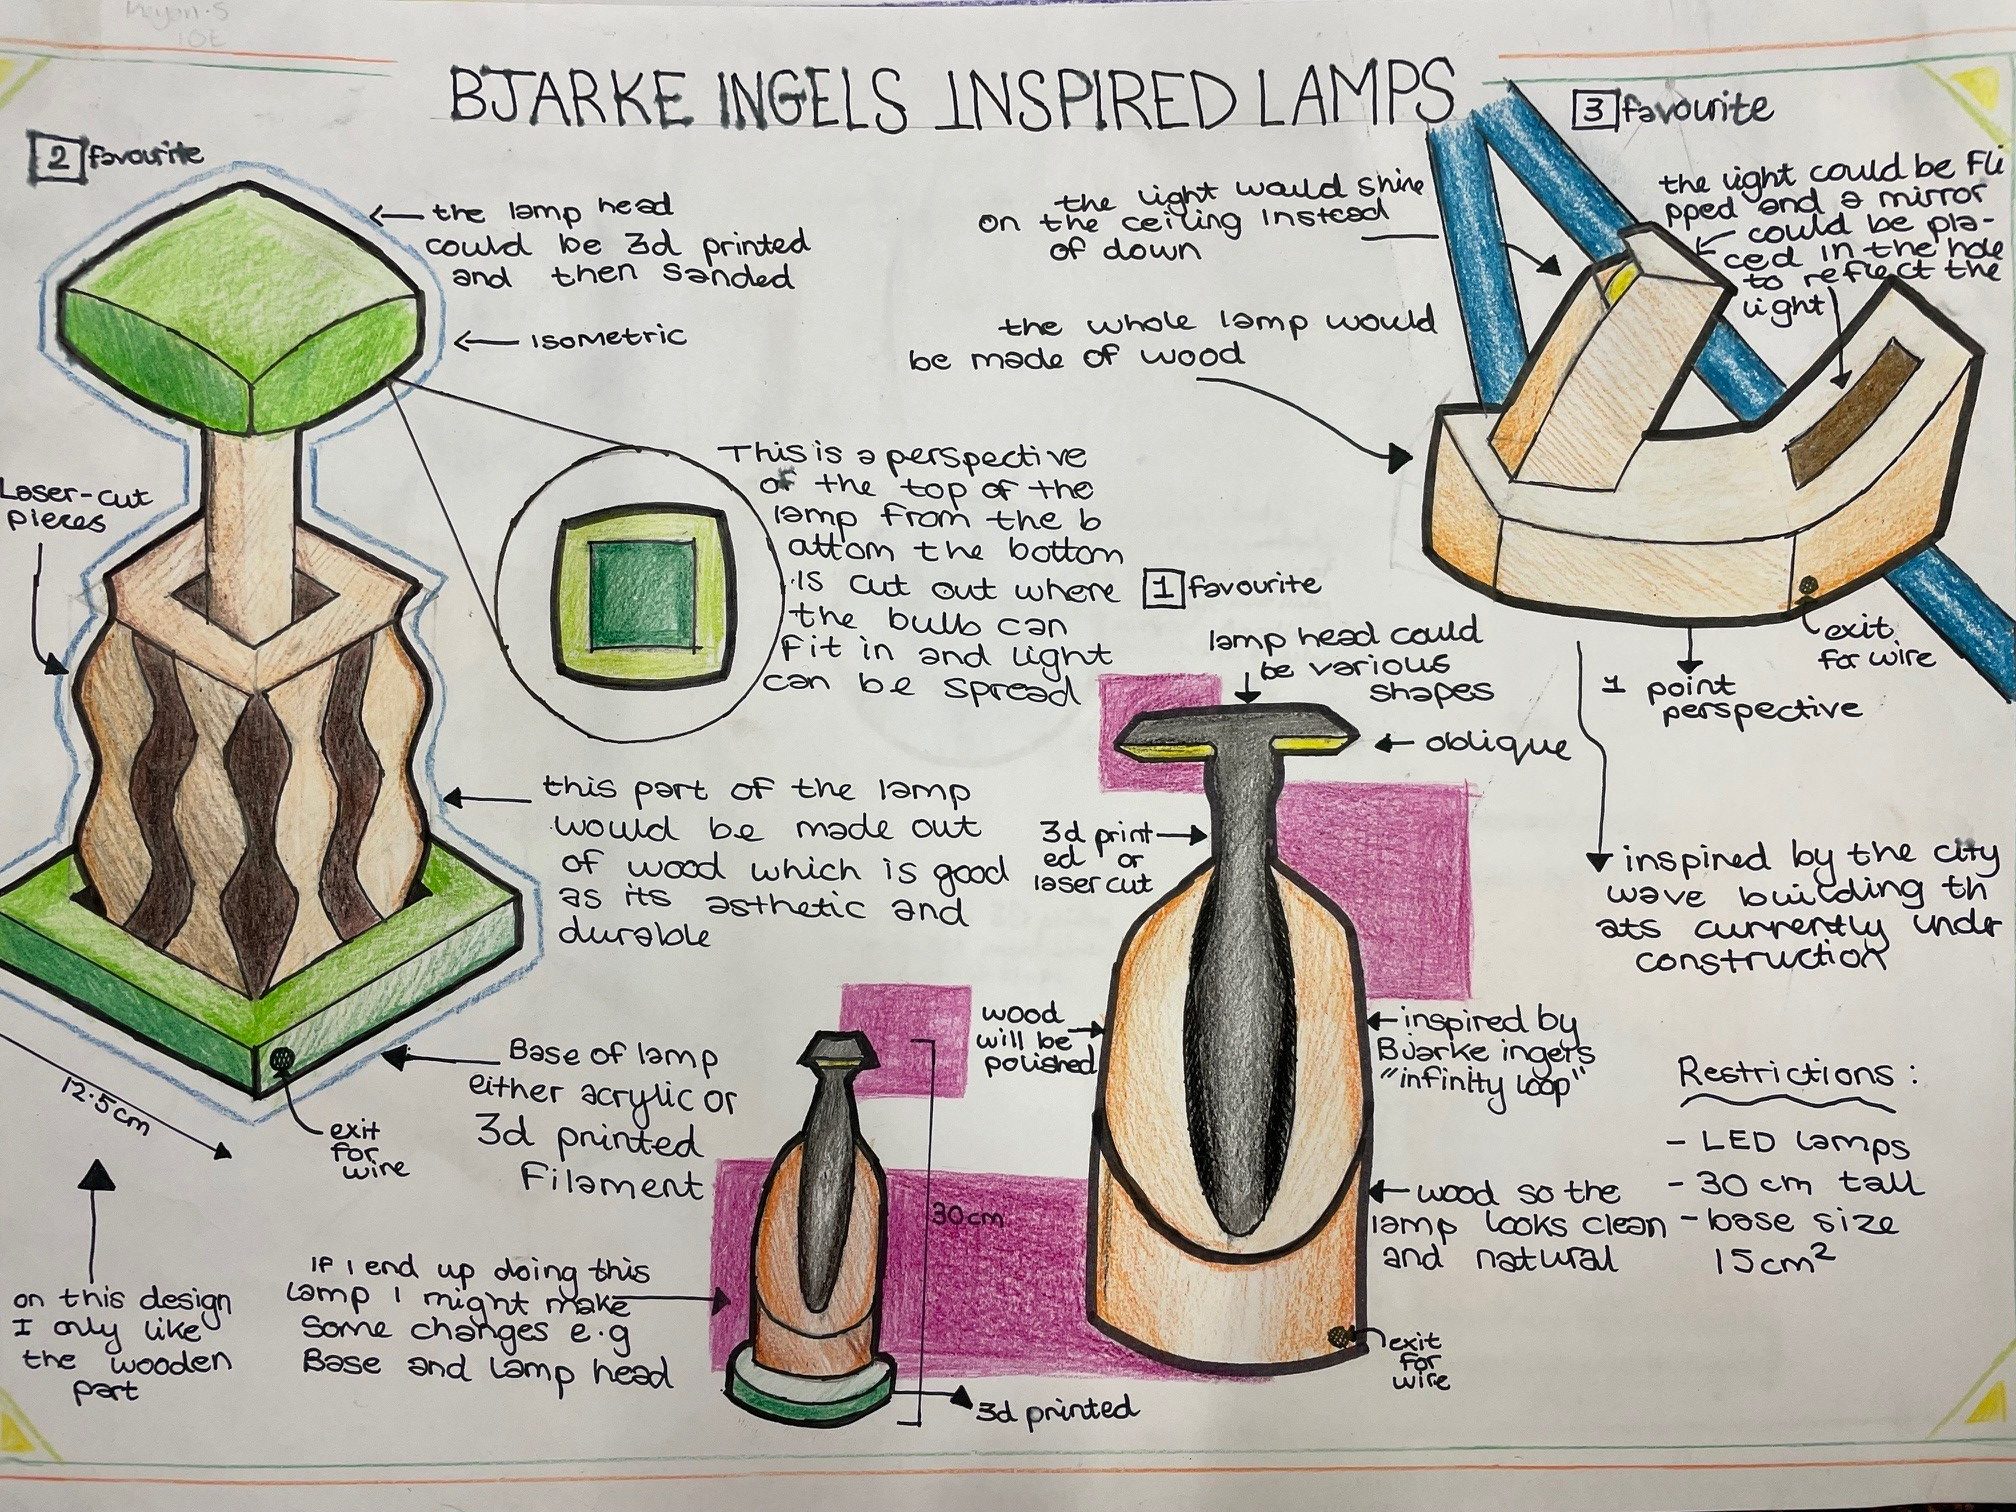 BJARKE INGELS INSPIRED LAMPS
2 favourite
the lamp head
could be 3d printed
and then sanded
Isometric
Laser-cut
pieces
This is a perspective
of the top of the
lamp from the b
attom the bottom
is cut out where
the bulb can
fit in and light
can be spread
this part of the lamp
would be made out
of wood which is good
as its asthetic and
durable
Base of lamp
either acrylic or
3d printed
Filament
exit
for
wire
12.5cm
on this design
I only like
the wooden
part
If i end up doing this
lamp I might make
some changes e.g
Base and lamp head
30cm
3d printed
1 favourite
lamp head could
be various
shapes
oblique
3d print
ed or
laser cut
wood
will be
polished
inspired by
Bjarke ingers
"infinity loop"
wood so the
lamp looks clean
and natural
exit
for
wire
3 favourite
the light would shine
on the ceiling instead
of down
the light could be fli
pped and a mirror
could be pla-
ced in the hole
to reflect the
light
the whole lamp would
be made of wood
exit
for wire
1 point
perspective
inspired by the city
wave building th
ats currently under
construction
Restrictions:
- LED lamps
- 30 cm tall
- base size
15cm²